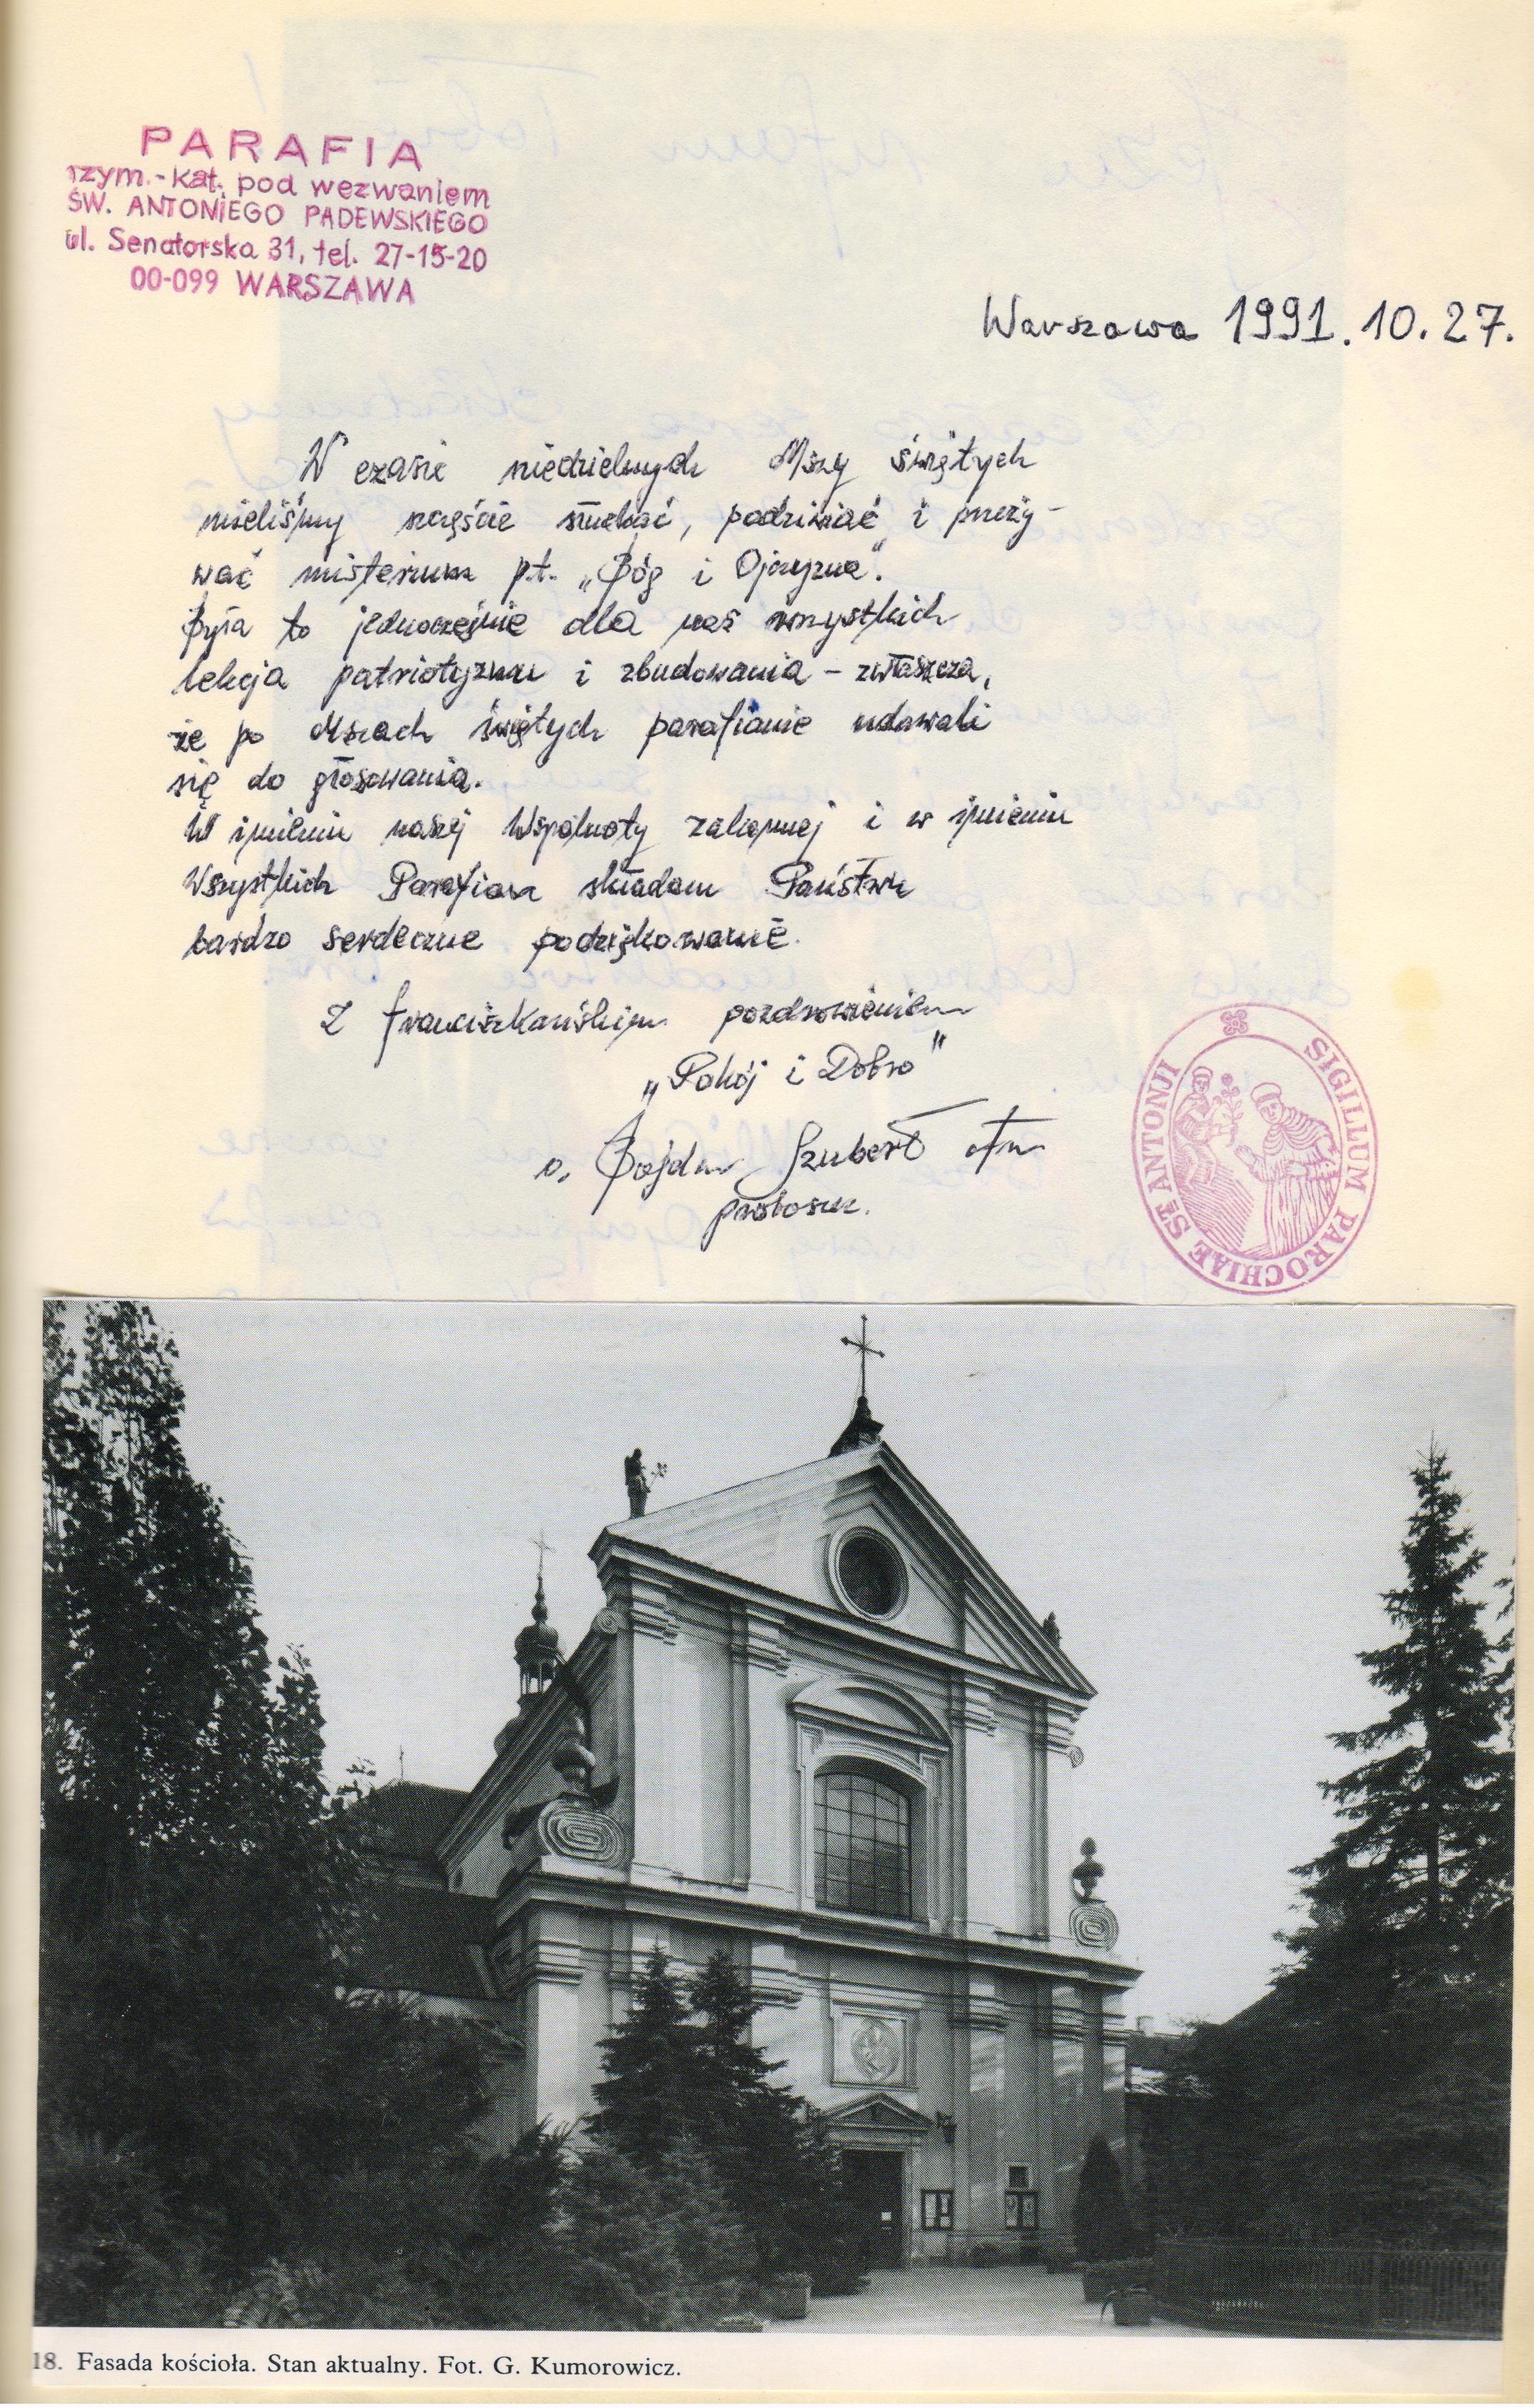 PARAFIA
rzym.-kat. pod wezwaniem
ŚW. ANTONIEGO PADEWSKIEGO
ul. Senatorska 31, tel. 27-15-20
00-099 WARSZAWA
Warszawa 1991.10.27.
W czasie niedzielnych Mszy świętych
mieliśmy szczęście słuchać, podziwiać i przeży-
wać misterium p.t. „Bóg i Ojczyzna".
Była to jednocześnie dla nas wszystkich
lekcja patriotyzmu i zbudowania - zwłaszcza,
że po Mszach świętych parafianie udawali
się do głosowania.
W imieniu naszej Wspólnoty zakonnej i w imieniu
Wszystkich Parafian składam Państwu
bardzo serdeczne podziękowanie.
Z franciszkańskim pozdrowieniem
„Pokój i Dobro"
o. Bojdan Szubert ofm
proboszcz.
SIGILLUM PAROCHIAE ST ANTONJI
18. Fasada kościoła. Stan aktualny. Fot. G. Kumorowicz.